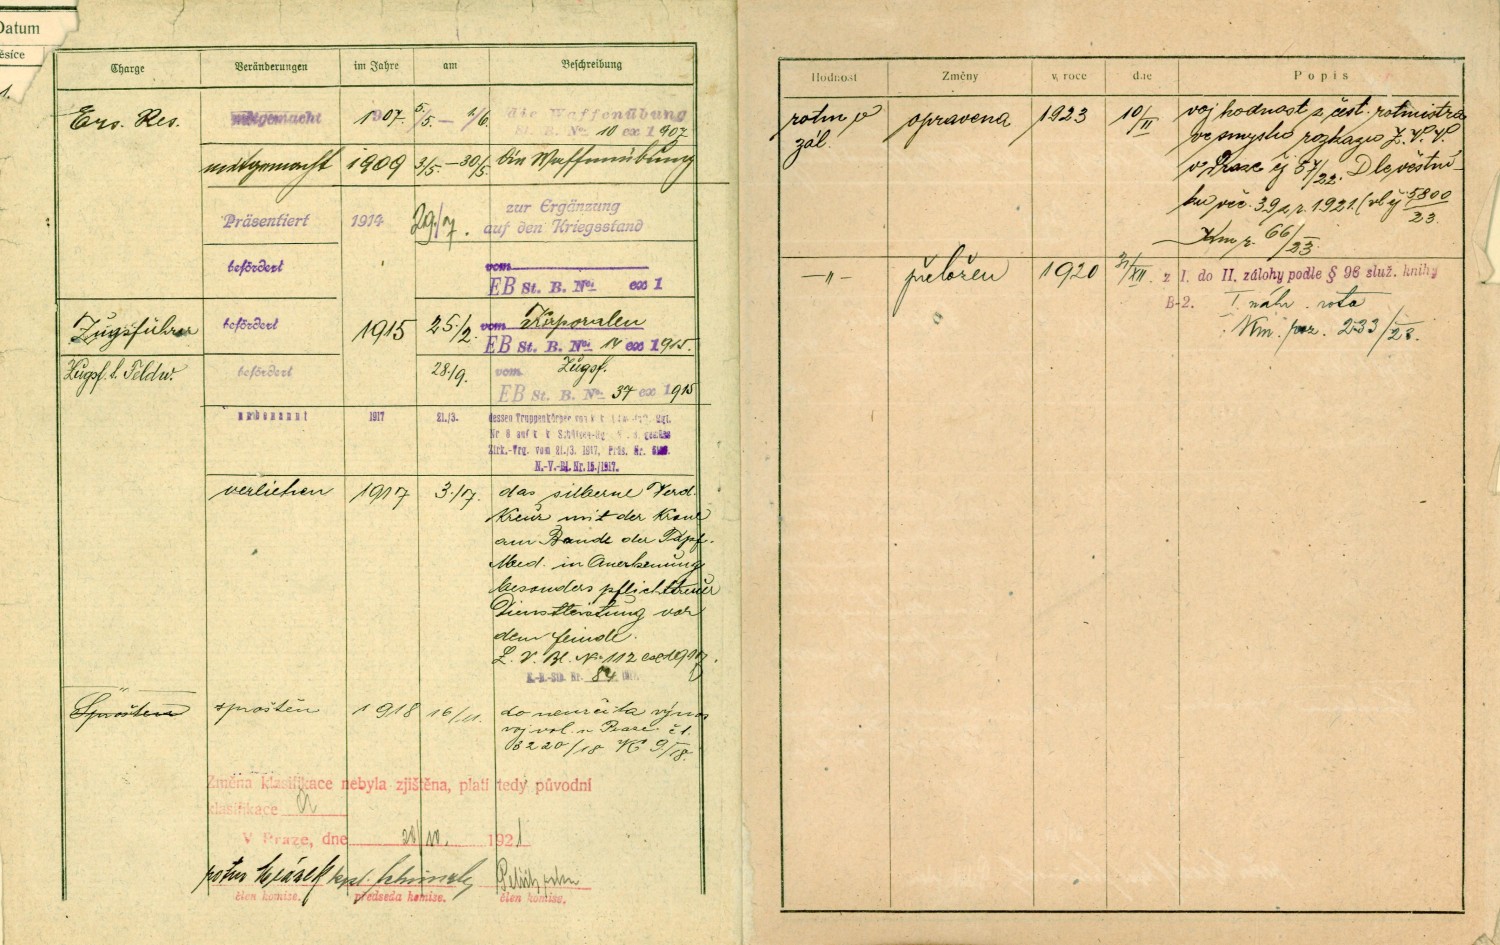 Datum
ěsíce
1.
Charge Veränderungen im Jahre am Beschreibung
Ers. Res. mitgemacht 1907. 5/5. — 1/6. die Waffenübung
St. B. No 10 ex 1907
mitgemacht 1909 3/5. — 30/5. die Waffenübung
Präsentiert 1914 29./7. zur Ergänzung
auf den Kriegsstand
befördert vom
EB St. B. No ex 1
Zugsführer befördert 1915 25./2. vom Korporalen
EB St. B. No 14 ex 1915.
Zugsf. t. Feldw. befördert 28/9. vom Zugsf.
EB St. B. No 37 ex 1915
umbenannt 1917 21./3. dessen Truppenkörper von k. k.
Nr 8 auf k k Schützen-Rg gemäss
Zirk.-Vrg. vom 21./3. 1917, Präs. Nr.
N.-V.-Bl. Nr. 15./1917.
verliehen 1917 3./7. das silberne Verd.
Kreuz mit der Krone
am Bande der Tapf.
Med. in Anerkennung
besonders pflichttreuer
Dienstleistung vor
dem Feinde.
L. V. Bl. No 112 ex 1917.
84 1917.
Sproštěn sproštěn 1918 16/11. do neurčita výnos
voj. vel. v Praze č1.
6220/18 K 9/18.
Změna klasifikace nebyla zjištěna, platí tedy původní
klasifikace A
V Praze, dne 1921
člen komise. předseda komise. člen komise.
Hodnost Změny v roce dne Popis
rotm v opravena 1923 10/II voj hodnost z čest. rotmistra
zál. ve smyslu rozkazu Z. V. V.
v Praze čj 57/22. Dle věstní-
ku věc. 39 z r. 1921. (vl čj 5800/23.
Km p. 66/23.
—"— přeložen 1920 31/XII. z I. do II. zálohy podle § 96 služ. knihy
B-2. I. náhr. rota
Km. poz. 233/23.